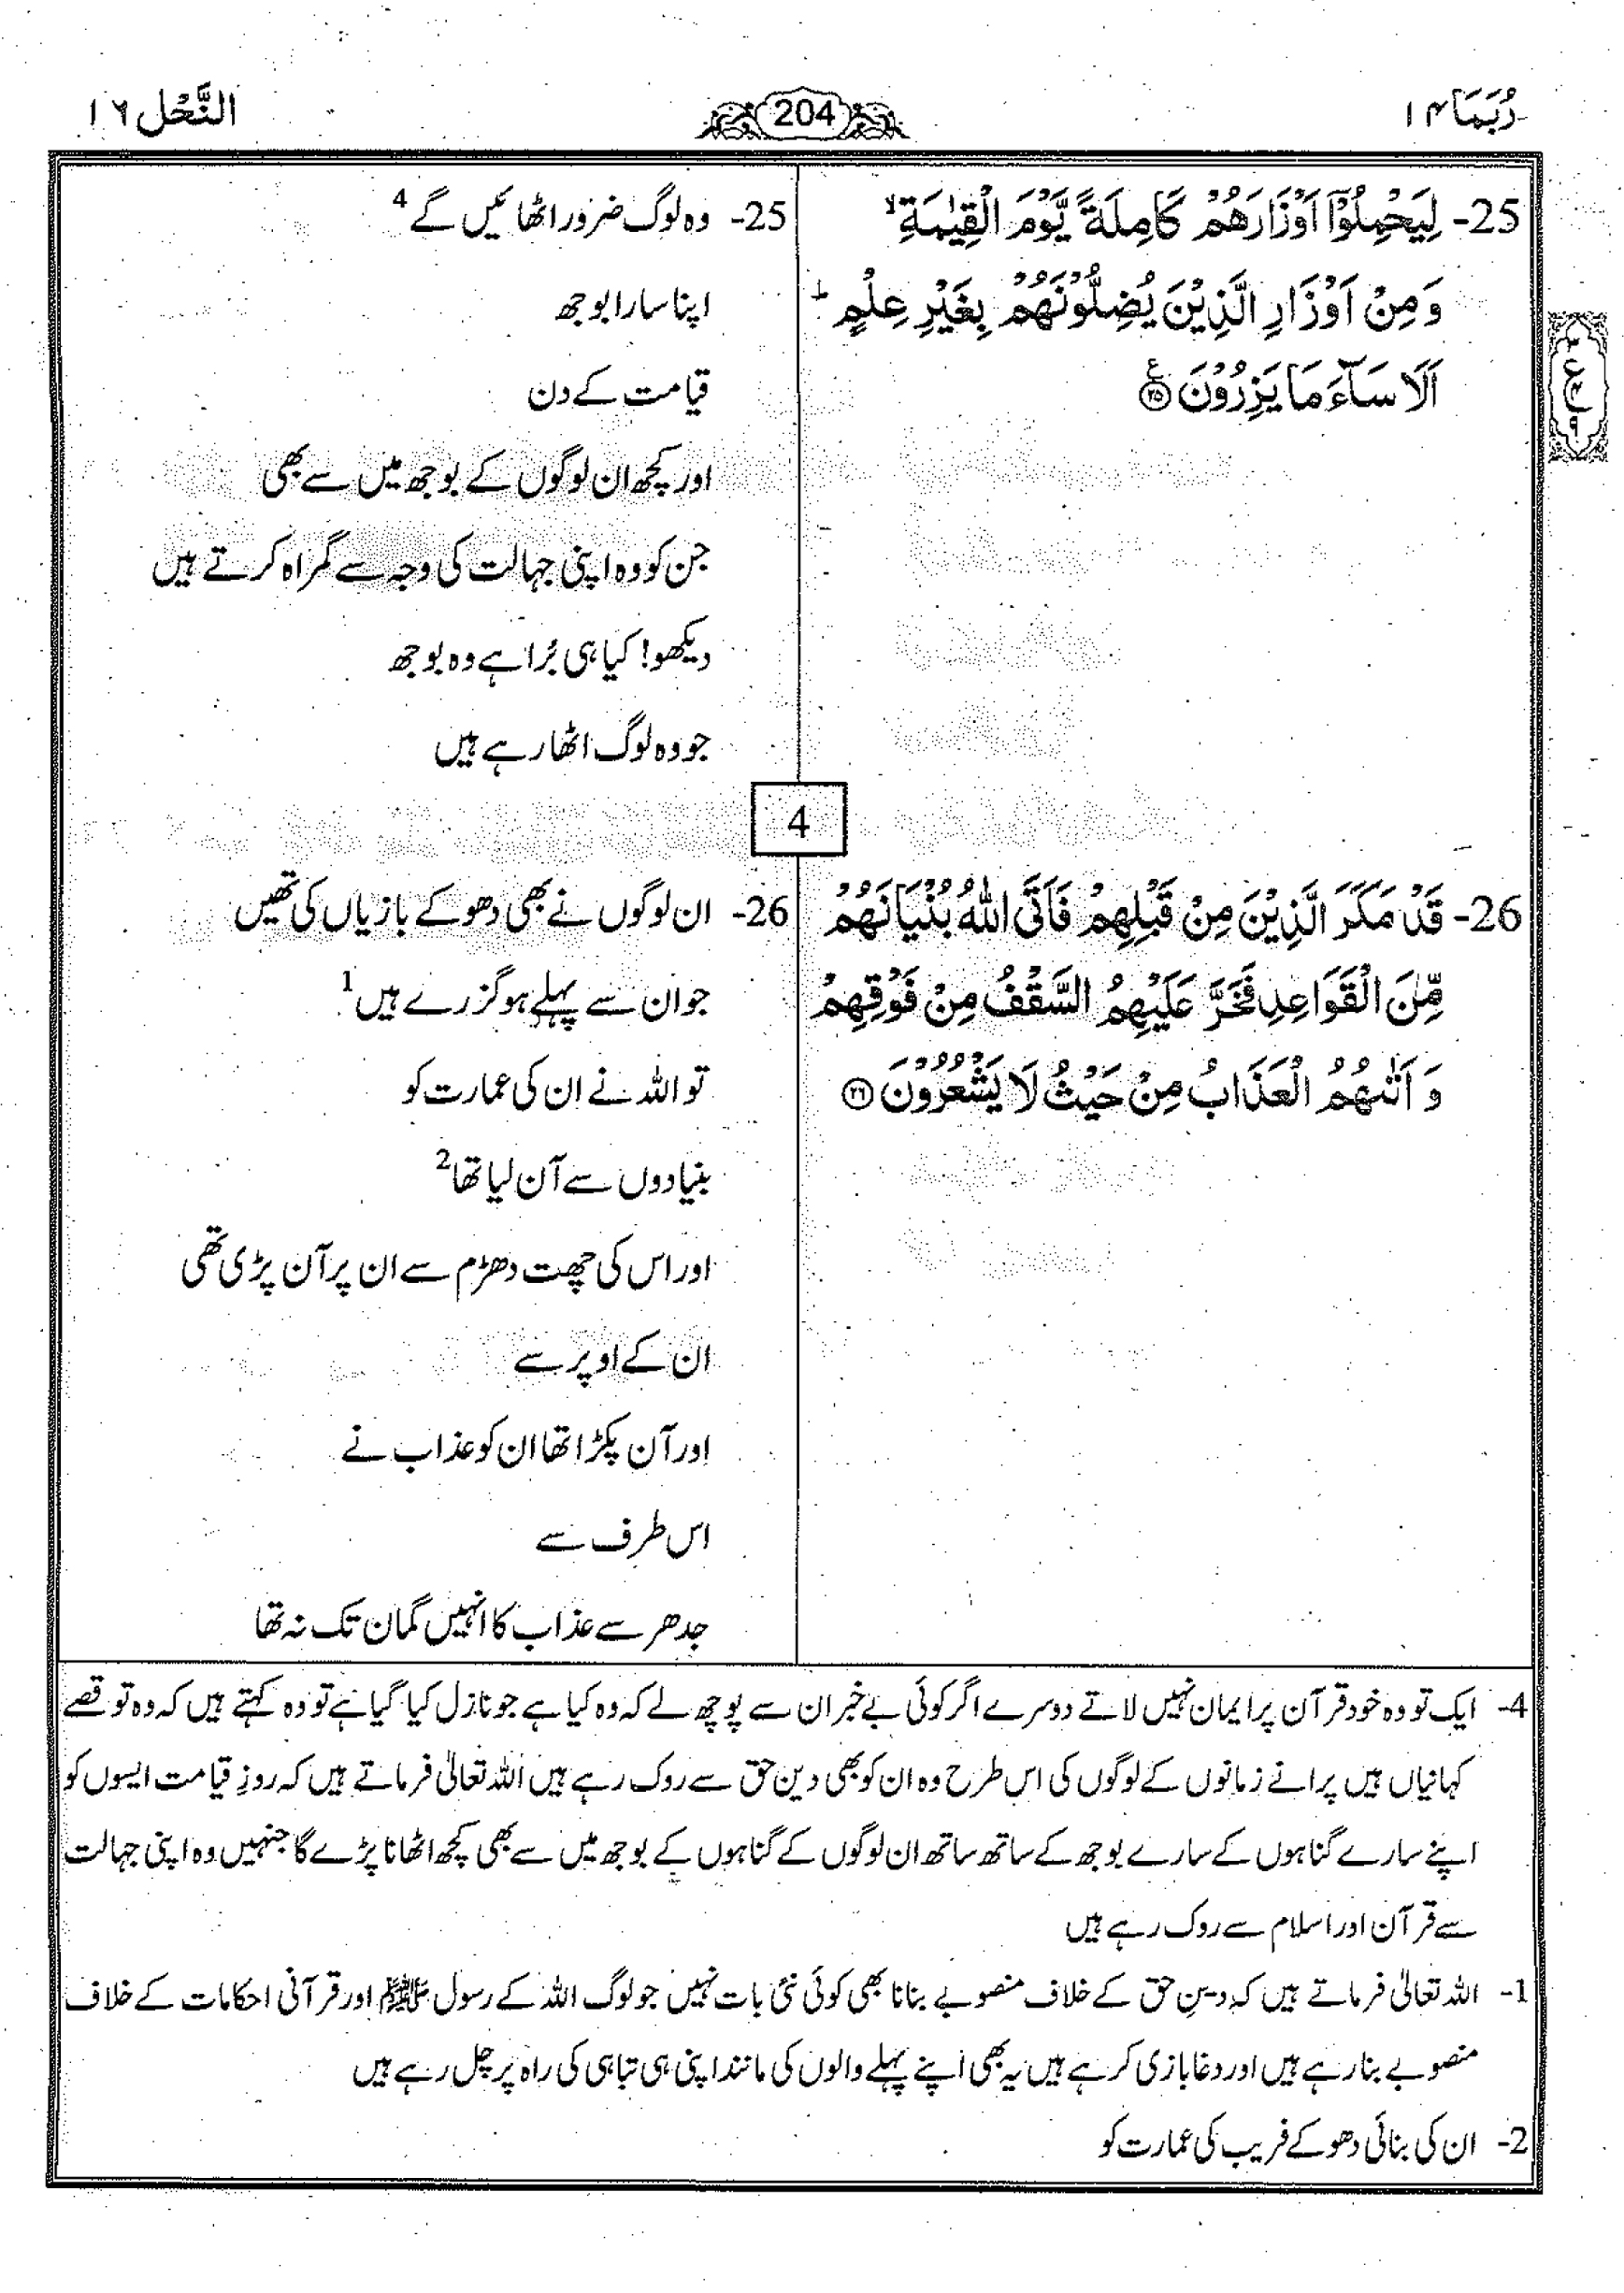 رُبَمَا ۱۴
204
النَّحْل ۱۶
25- لِيَحْمِلُوْۤا اَوْزَارَهُمْ كَامِلَةً يَّوْمَ الْقِيٰمَةِ ۙ
وَ مِنْ اَوْزَارِ الَّذِيْنَ يُضِلُّوْنَهُمْ بِغَيْرِ عِلْمٍ ؕ
اَلَا سَآءَ مَا يَزِرُوْنَ ۟ ۲۵ ع
ع ۳ ۴ ۹
25- وہ لوگ ضرور اٹھائیں گے 4
اپنا سارا بوجھ
قیامت کے دن
اور کچھ ان لوگوں کے بوجھ میں سے بھی
جن کو وہ اپنی جہالت کی وجہ سے گمراہ کرتے ہیں
دیکھو! کیا ہی بُرا ہے وہ بوجھ
جو وہ لوگ اٹھا رہے ہیں
4
26- قَدْ مَكَرَ الَّذِيْنَ مِنْ قَبْلِهِمْ فَاَتَى اللّٰهُ بُنْيَانَهُمْ
مِّنَ الْقَوَاعِدِ فَخَرَّ عَلَيْهِمُ السَّقْفُ مِنْ فَوْقِهِمْ
وَ اَتٰىهُمُ الْعَذَابُ مِنْ حَيْثُ لَا يَشْعُرُوْنَ ۲۶
26- ان لوگوں نے بھی دھوکے بازیاں کی تھیں
جو ان سے پہلے ہو گزرے ہیں 1
تو اللہ نے ان کی عمارت کو
بنیادوں سے آن لیا تھا 2
اور اس کی چھت دھڑم سے ان پر آن پڑی تھی
ان کے اوپر سے
اور آن پکڑا تھا ان کو عذاب نے
اس طرف سے
جدھر سے عذاب کا انہیں گمان تک نہ تھا
4- ایک تو وہ خود قرآن پر ایمان نہیں لاتے دوسرے اگر کوئی بے خبر ان سے پوچھ لے کہ وہ کیا ہے جو نازل کیا گیا ہے تو وہ کہتے ہیں کہ وہ تو قصے
کہانیاں ہیں پرانے زمانوں کے لوگوں کی اس طرح وہ ان کو بھی دین حق سے روک رہے ہیں اللہ تعالیٰ فرماتے ہیں کہ روزِ قیامت ایسوں کو
اپنے سارے گناہوں کے سارے بوجھ کے ساتھ ساتھ ان لوگوں کے گناہوں کے بوجھ میں سے بھی کچھ اٹھانا پڑے گا جنہیں وہ اپنی جہالت
سے قرآن اور اسلام سے روک رہے ہیں
1- اللہ تعالیٰ فرماتے ہیں کہ دینِ حق کے خلاف منصوبے بنانا بھی کوئی نئی بات نہیں جو لوگ اللہ کے رسول ﷺ اور قرآنی احکامات کے خلاف
منصوبے بنا رہے ہیں اور دغا بازی کر رہے ہیں یہ بھی اپنے پہلے والوں کی مانند اپنی ہی تباہی کی راہ پر چل رہے ہیں
2- ان کی بنائی دھوکے فریب کی عمارت کو